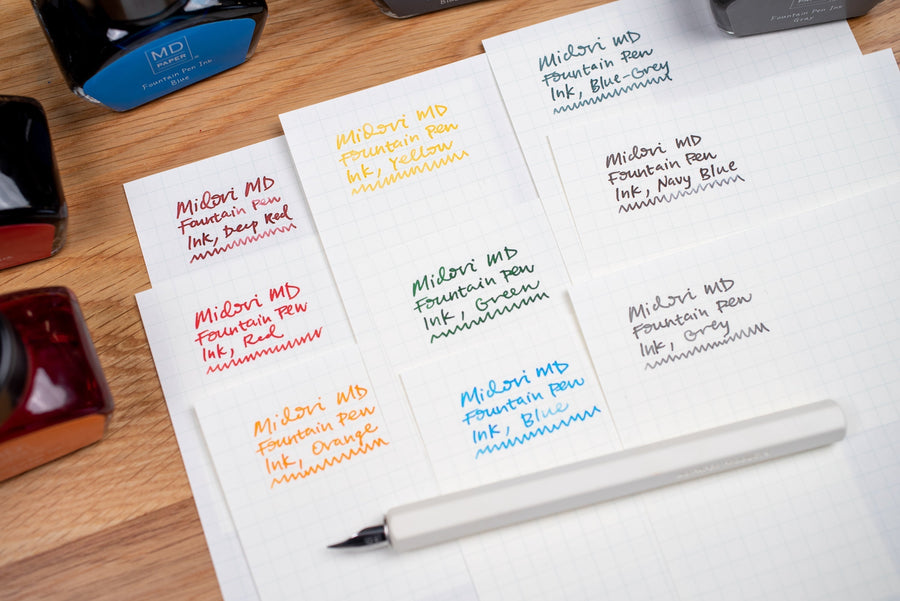 MD
PAPER
Fountain Pen Ink
Blue
Fountain Pen Ink
Gray
Midori MD
Fountain Pen
Ink, Deep Red
Midori MD
Fountain Pen
Ink, Red
Midori MD
Fountain Pen
Ink, Orange
Midori MD
Fountain Pen
Ink, Yellow
Midori MD
Fountain Pen
Ink, Green
Midori MD
Fountain Pen
Ink, Blue
Midori MD
Fountain Pen
Ink, Blue-Grey
Midori MD
Fountain Pen
Ink, Navy Blue
Midori MD
Fountain Pen
Ink, Grey